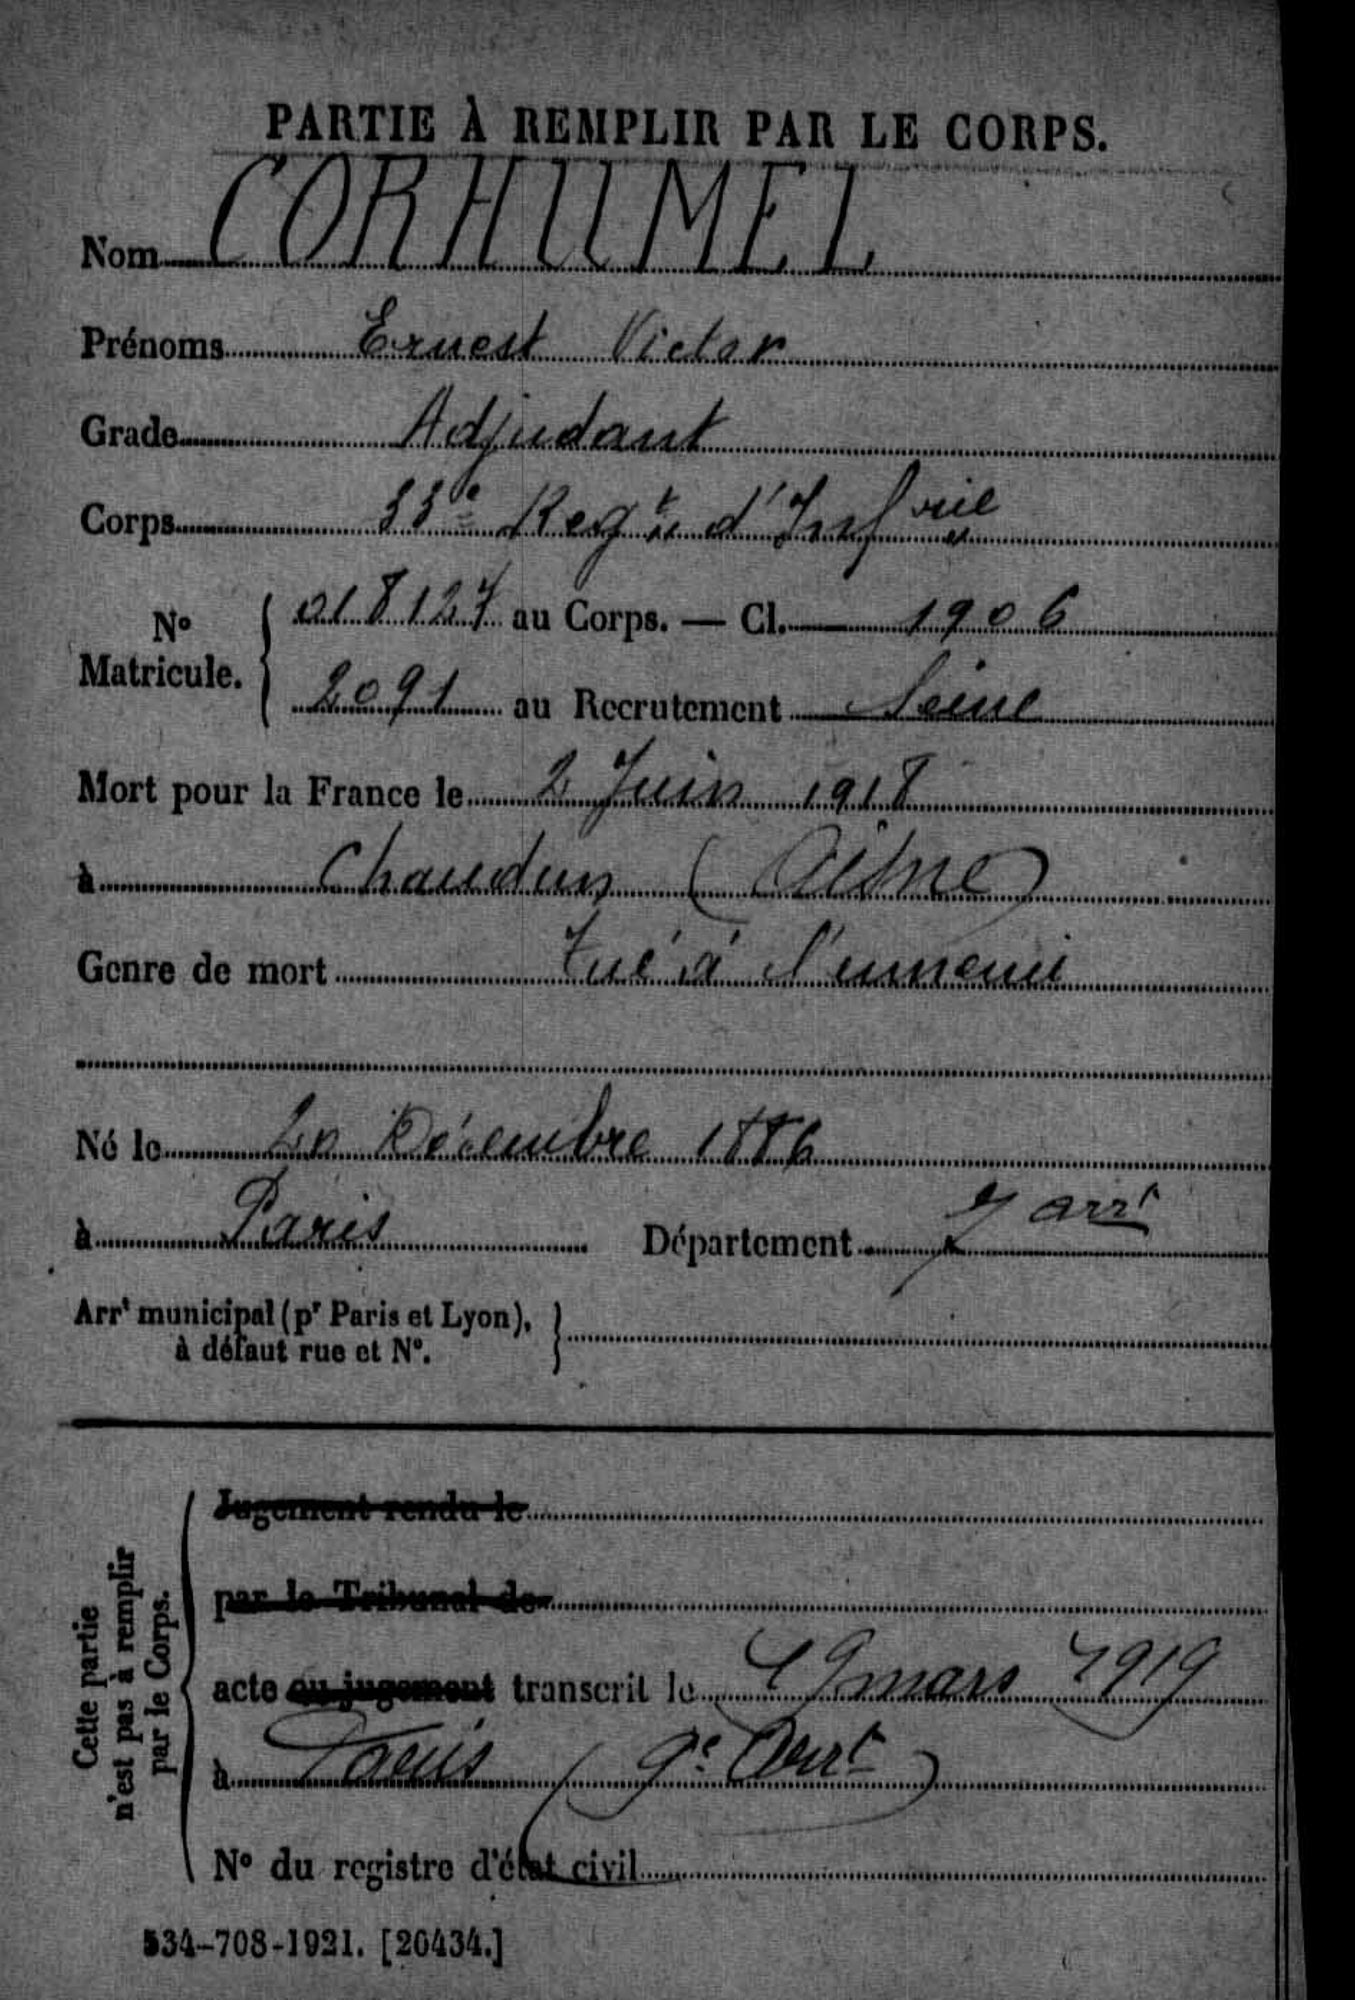 PARTIE À REMPLIR PAR LE CORPS.
Nom CORHUMEL
Prénoms Ernest Victor
Grade Adjudant
Corps 33e Regt d'Infrie
No Matricule. { 018127 au Corps. — Cl. 1906
2091 au Recrutement Seine
Mort pour la France le 2 Juin 1918
à Chaudun (Aisne)
Genre de mort Tué à l'ennemi
Né le 20 Décembre 1886
à Paris Département 7 arrt
Arrt municipal (pr Paris et Lyon), à défaut rue et No. }
Cette partie n'est pas à remplir par le Corps.
Jugement rendu le
par le Tribunal de
acte ou jugement transcrit le 19 mars 1919
à Paris (9e Arrt)
No du registre d'état civil
534-708-1921. [26434.]